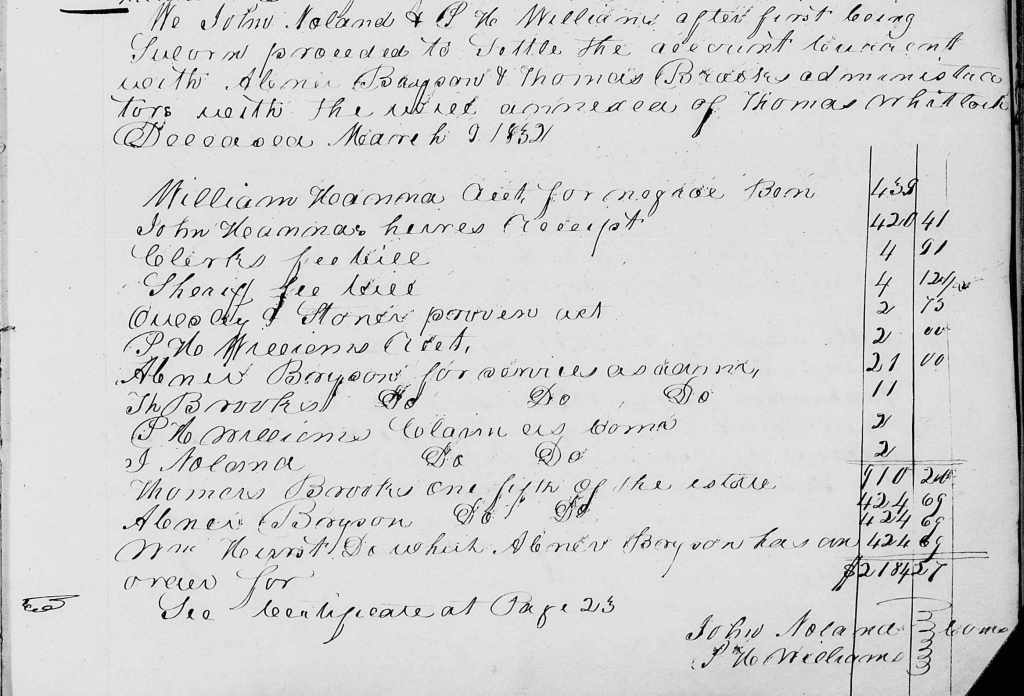 We John Noland & P H Williams after first being
Sworn proceeded to Settle the account Current
with Abner Bryson & Thomas Brooks administra
tors with the will annexed of Thomas Whitlock
Deceased March 9 1832
William Hanna acct, for negroe Ben 439
John Hannas heires Receipt 420 41
Clerks fee bill 4 91
Sheriff fee bill 4 12 1/2
Ousley & Stones proven act 2 75
P H Williams Acct, 2 00
Abner Bryson for services as admr, 21 00
Th Brooks Do Do Do 11
P H Williams Claim as Comr 2
J Noland Do Do 2
910 20
Thomas Brooks one fifth of the estate 424 69
Abner Bryson Do Do 424 69
Wm Hurst Do which Abner Bryson has an 424 69
order for $2184 27
See Certificate at Page 23
John Noland
P H Williams Coms